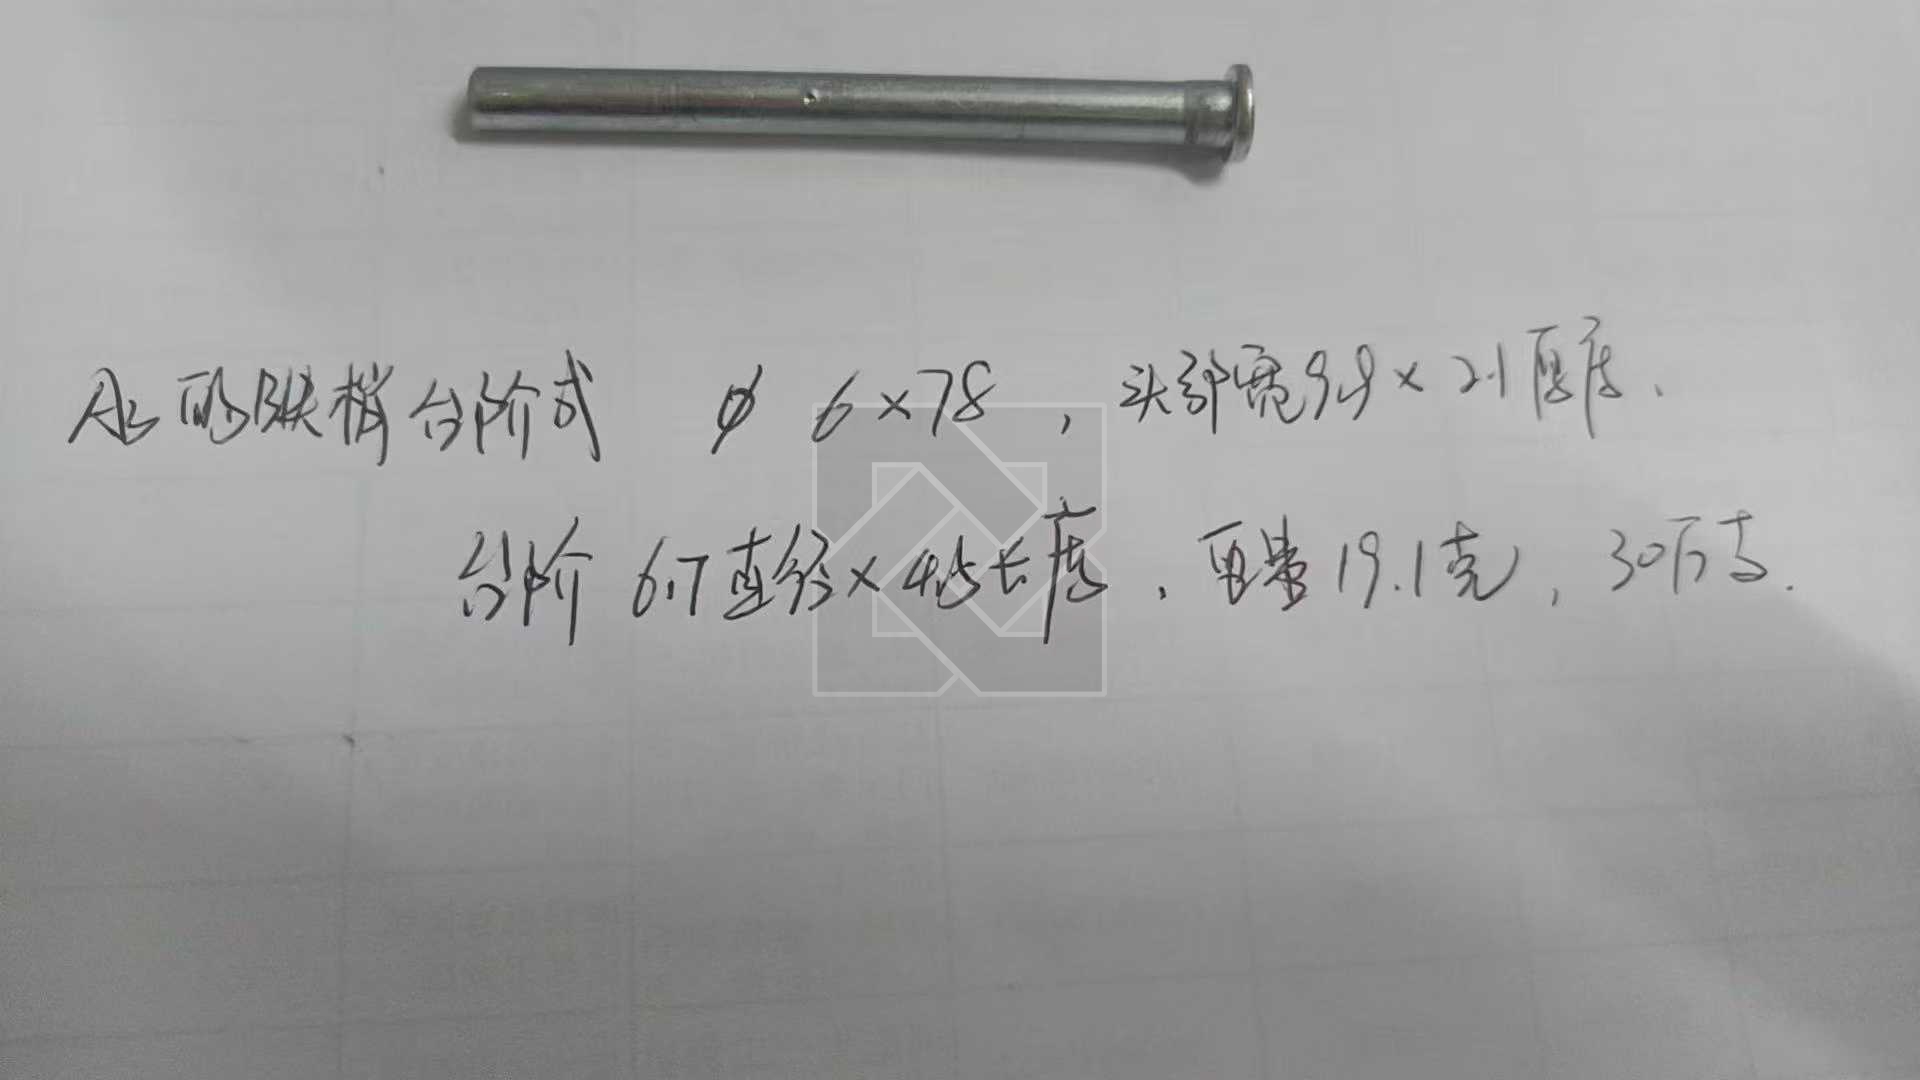 A3 西郎铁梢台阶式 φ 6×78,头部宽9.9×2.1厚度.
台阶 6.7直径×4.5长度.重量19.1克,30万支.